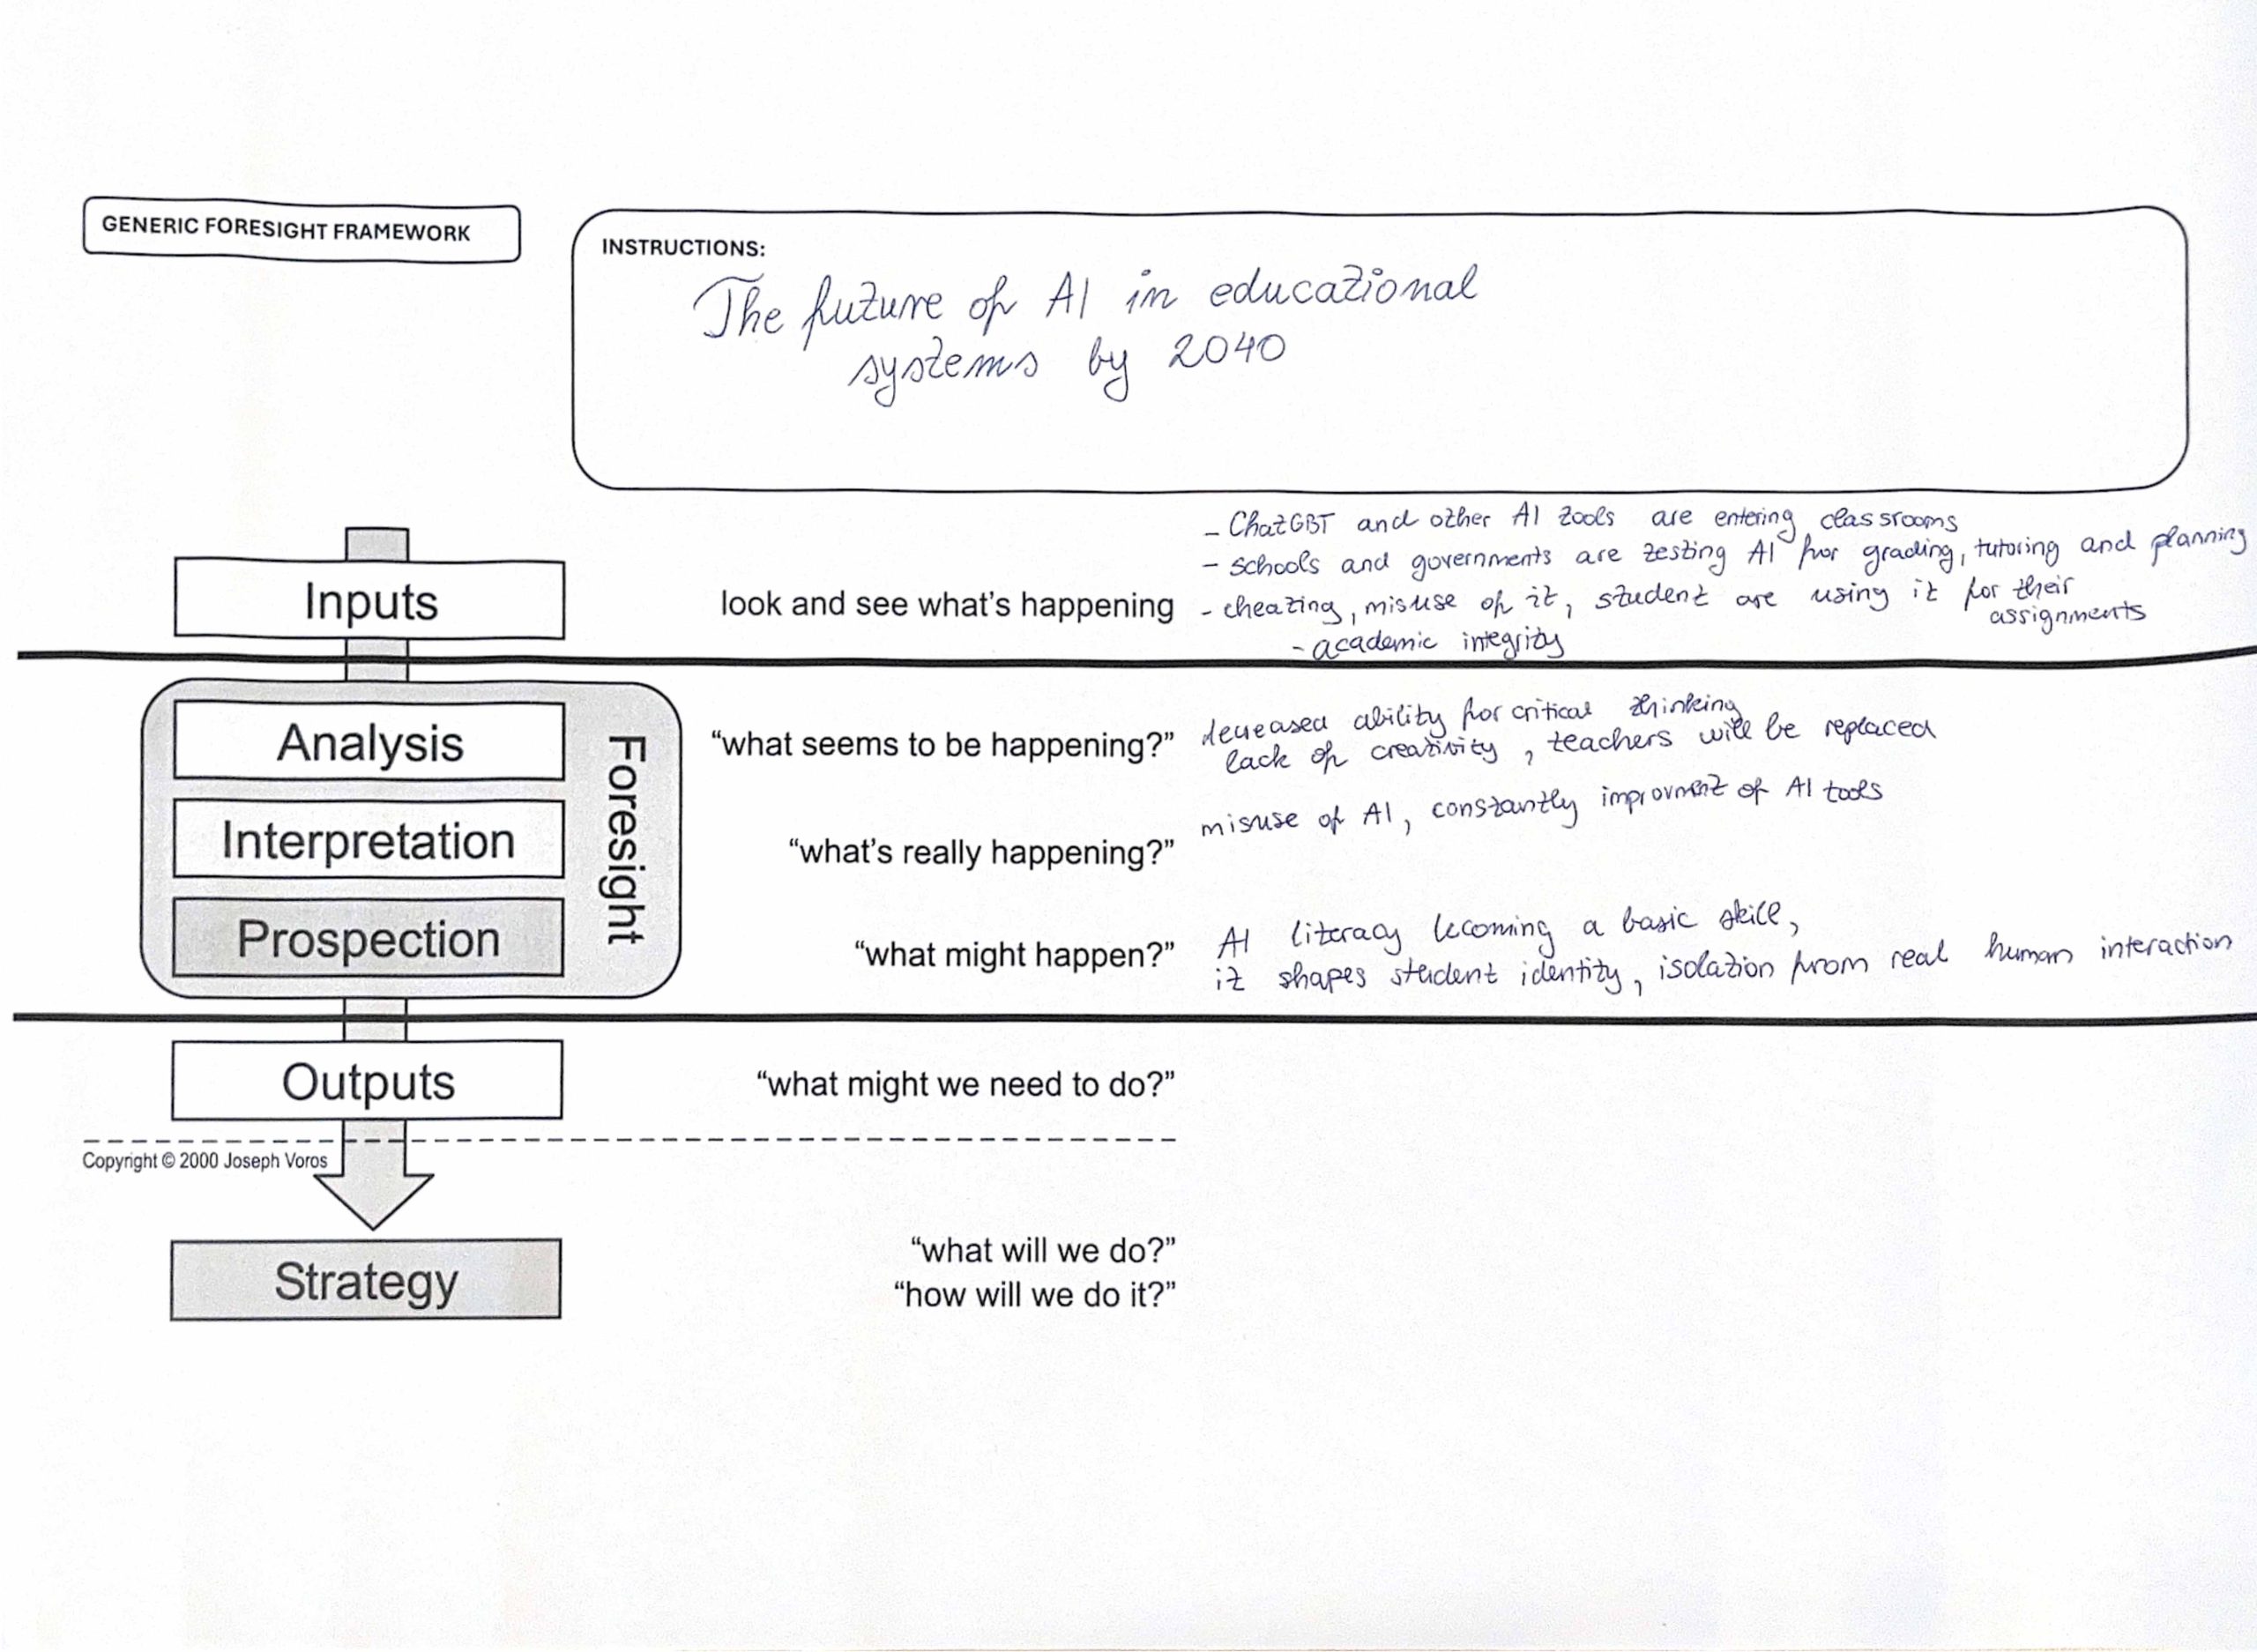 GENERIC FORESIGHT FRAMEWORK
INSTRUCTIONS:
The future of AI in educational
systems by 2040
Inputs
look and see what's happening
- ChatGBT and other AI tools are entering classrooms
- schools and governments are testing AI for grading, tutoring and planning
- cheating, misuse of it, student are using it for their
assignments
- academic integrity
Foresight
Analysis
“what seems to be happening?”
decreased ability for critical thinking
lack of creativity, teachers will be replaced
Interpretation
“what's really happening?”
misuse of AI, constantly improvment of AI tools
Prospection
“what might happen?”
AI literacy becoming a basic skill,
it shapes student identity, isolation from real human interaction
Outputs
“what might we need to do?”
Copyright © 2000 Joseph Voros
Strategy
“what will we do?”
“how will we do it?”